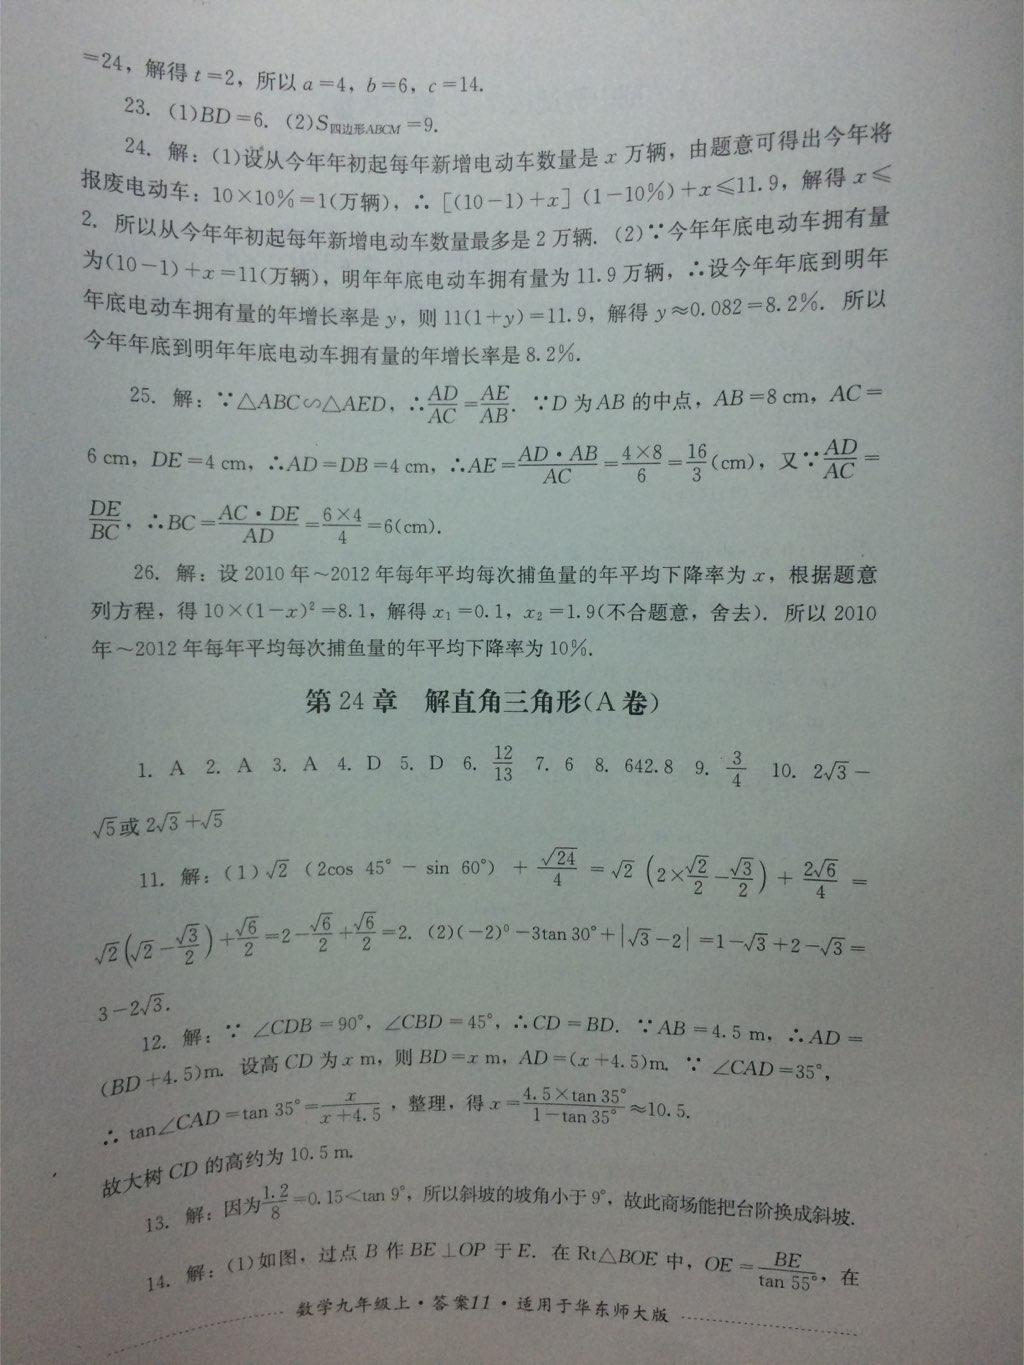 =24，解得 t=2，所以 a=4，b=6，c=14.
23. (1)BD=6. (2)S四边形ABCM=9.
24. 解：(1)设从今年年初起每年新增电动车数量是 x 万辆，由题意可得出今年将
报废电动车：10×10%=1(万辆)，∴[(10-1)+x](1-10%)+x≤11.9，解得 x≤
2. 所以从今年年初起每年新增电动车数量最多是 2 万辆. (2)∵今年年底电动车拥有量
为(10-1)+x=11(万辆)，明年年底电动车拥有量为 11.9 万辆，∴设今年年底到明年
年底电动车拥有量的年增长率是 y，则 11(1+y)=11.9，解得 y≈0.082=8.2%. 所以
今年年底到明年年底电动车拥有量的年增长率是 8.2%.
25. 解：∵△ABC∽△AED，∴AD/AC=AE/AB. ∵D 为 AB 的中点，AB=8 cm，AC=
6 cm，DE=4 cm，∴AD=DB=4 cm，∴AE=AD·AB/AC=4×8/6=16/3(cm)，又∵AD/AC=
DE/BC，∴BC=AC·DE/AD=6×4/4=6(cm).
26. 解：设 2010 年~2012 年每年平均每次捕鱼量的年平均下降率为 x，根据题意
列方程，得 10×(1-x)²=8.1，解得 x₁=0.1，x₂=1.9(不合题意，舍去). 所以 2010
年~2012 年每年平均每次捕鱼量的年平均下降率为 10%.
第 24 章 解直角三角形(A 卷)
1. A 2. A 3. A 4. D 5. D 6. 12/13 7. 6 8. 642.8 9. 3/4 10. 2√3-
√5或 2√3+√5
11. 解：(1)√2 (2cos 45°- sin 60°) + √24/4 = √2 (2×√2/2-√3/2) + 2√6/4 =
√2(√2-√3/2)+√6/2=2-√6/2+√6/2=2. (2)(-2)⁰-3tan 30°+|√3-2|=1-√3+2-√3=
3-2√3.
12. 解：∵ ∠CDB=90°，∠CBD=45°，∴CD=BD. ∵AB=4.5 m，∴AD=
(BD+4.5)m. 设高 CD 为 x m，则 BD=x m，AD=(x+4.5)m. ∵ ∠CAD=35°，
∴ tan∠CAD=tan 35°=x/x+4.5，整理，得 x=4.5×tan 35°/1-tan 35°≈10.5.
故大树 CD 的高约为 10.5 m.
13. 解：因为1.2/8=0.15<tan 9°，所以斜坡的坡角小于 9°，故此商场能把台阶换成斜坡.
14. 解：(1)如图，过点 B 作 BE⊥OP 于 E. 在 Rt△BOE 中，OE=BE/tan 55°，在
数学九年级上·答案11·适用于华东师大版